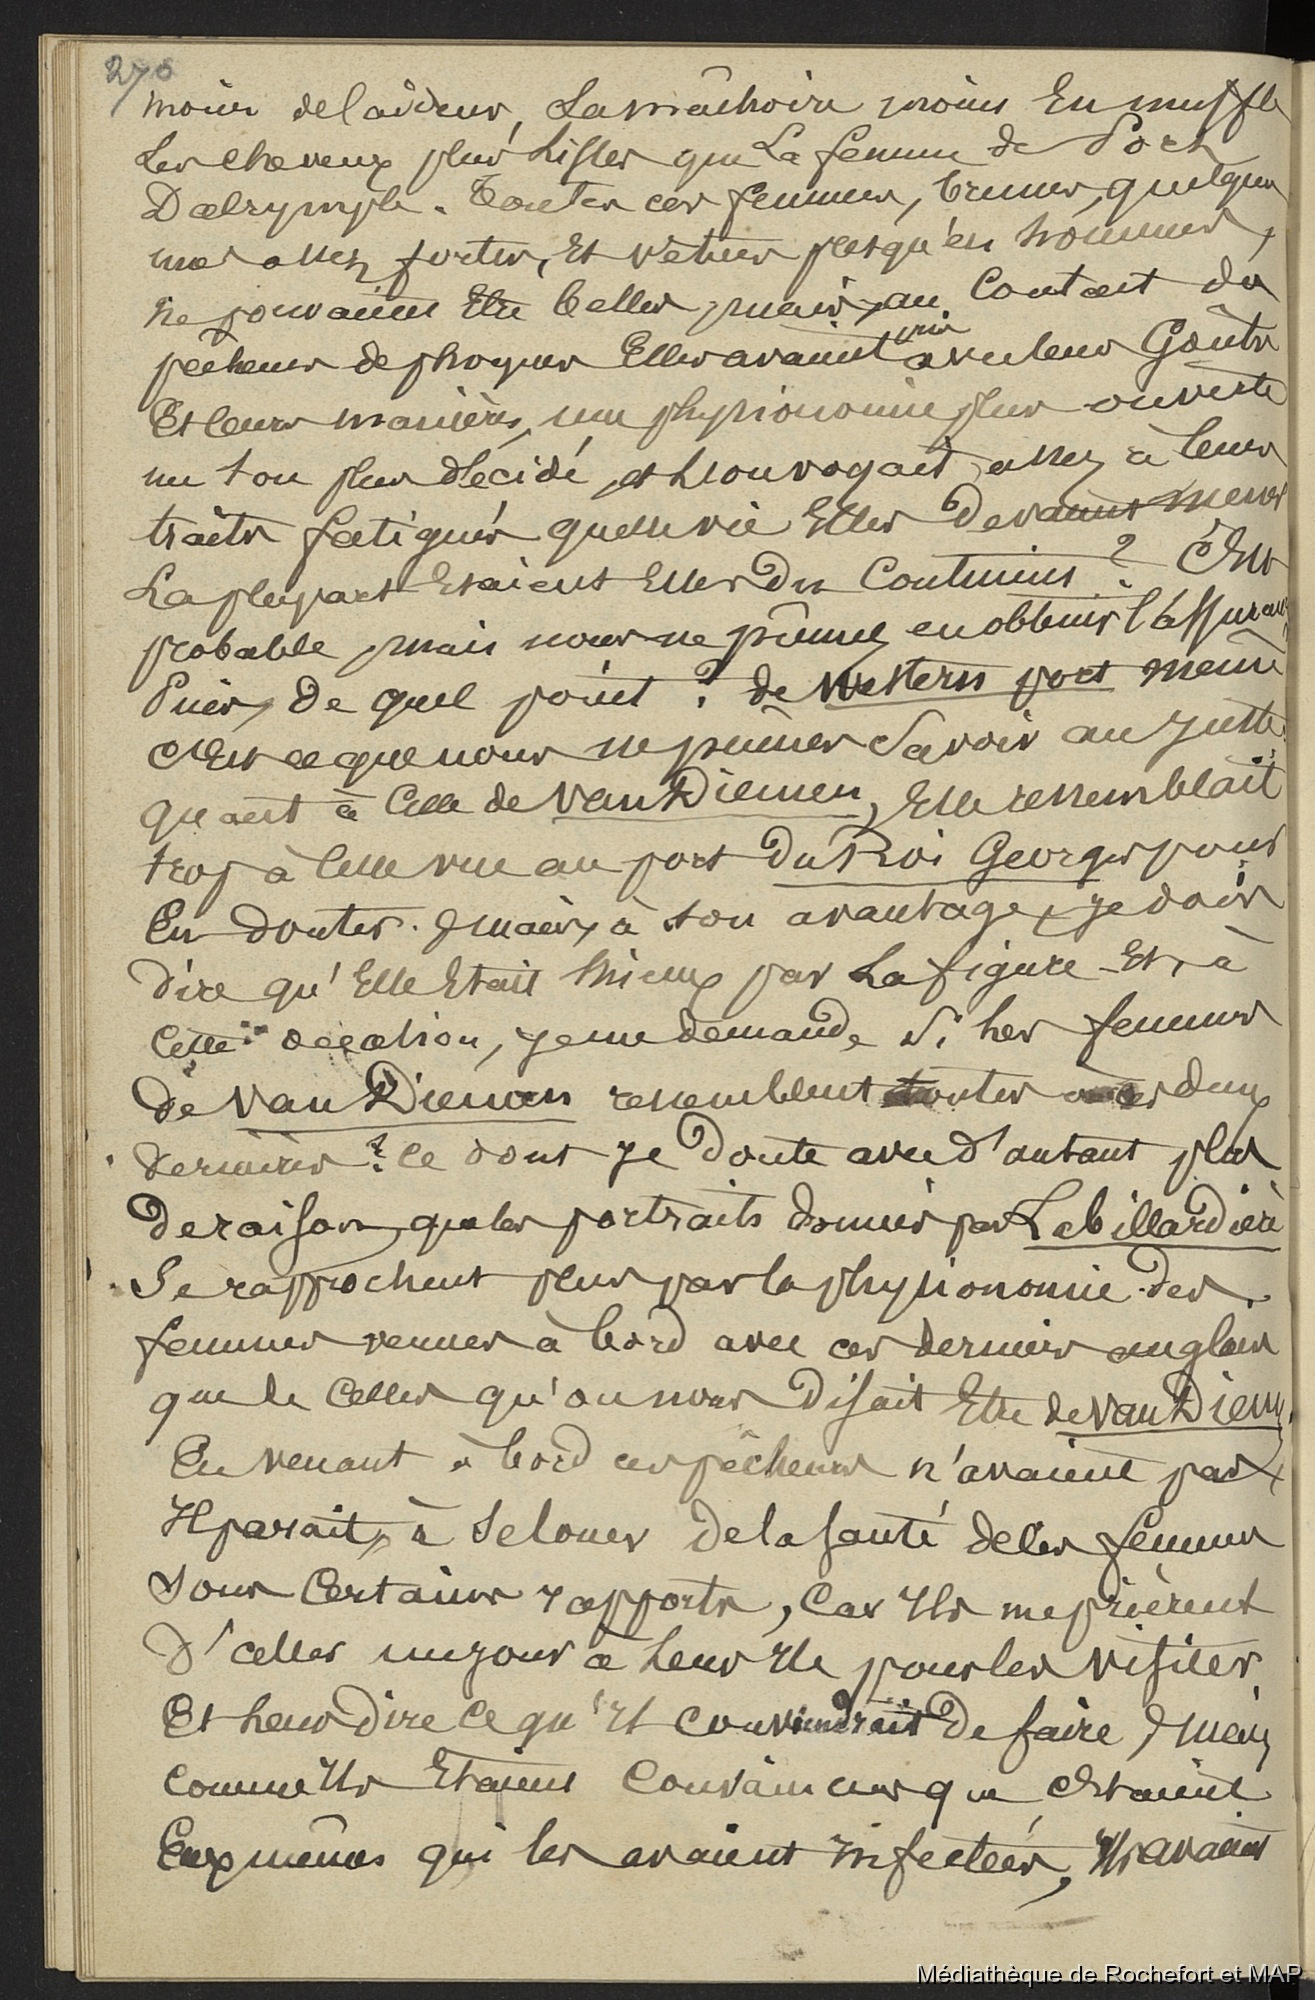 270
moins de laideur, La mâchoire moins En muffle
Les cheveux plus Lisses que La femme de Port
Dalrymple. Toutes ces femmes, brunes, quelques
unes assez fortes, Et vêtues presqu'en hommes,
ne pouvaient Etre belles, mais, au Contact des
pêcheurs de phoques Elles avaient pris avec leurs Goûts
Et leurs manières, une physionomie plus ouverte
un ton plus décidé, et l'on voyait assez à leurs
traits fatigués quelle vie Elles devaient mener
La plupart Etaient Elles Du Continent ? C'Est
probable, mais nous ne pûmes en obtenir l'assurance
Puis, De quel point ? de Western port même
C'Est ce que nous ne pûmes Savoir au Juste.
quant à Celle de Van Diemen, Elle ressemblait
trop à Celle vue au port Du Roi Georges pour
En douter. Mais, à son avantage, je dois
Dire qu'Elle Etait Mieux par La figure Et, à
Cette occasion, je me demande Si les femmes
de Van Diemen ressemblent toutes à ces deux
dernières ? Ce dont Je Doute avec D'autant plus
De raison, que les portraits donnés par Labillardière
Se rapprochent plus par la physionomie des
femmes venues à bord avec ces derniers anglais
que de Celles qu'on nous Disait Etre de Van Diemen.
En venant à bord ces pêcheurs n'avaient pas,
Il parait, à Se louer de la santé de Ces femmes
Sous Certains rapports, Car Ils me prièrent
D'aller un jour à Leur Ile pour les visiter
Et Leur Dire Ce qu'Il Conviendrait De faire, Mais
Comme Ils Etaient Convaincus que C'Etaient
Eux mêmes qui les avaient infectées, Ils avaient
Médiathèque de Rochefort et MAP